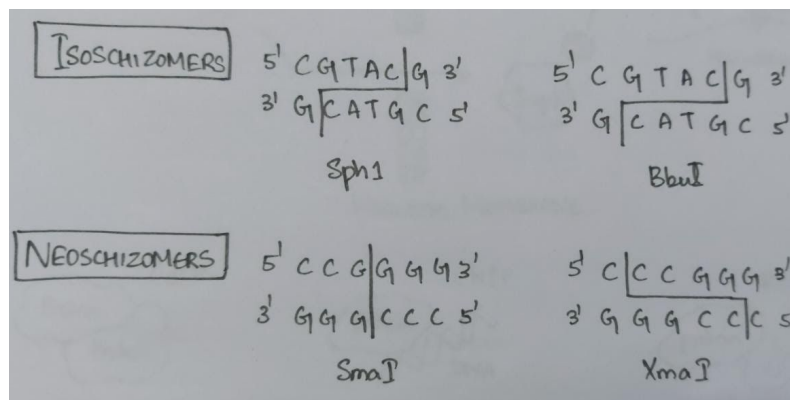 ISOSCHIZOMERS
5' CGTAC|G 3'
3' G|CATGC 5'
Sph1
5' C G T A C|G 3'
3' G|C A T G C 5'
BbuI
NEOSCHIZOMERS
5' C C G|G G G 3'
3' G G G|C C C 5'
SmaI
5' C|C C G G G 3'
3' G G G C C|C 5
XmaI